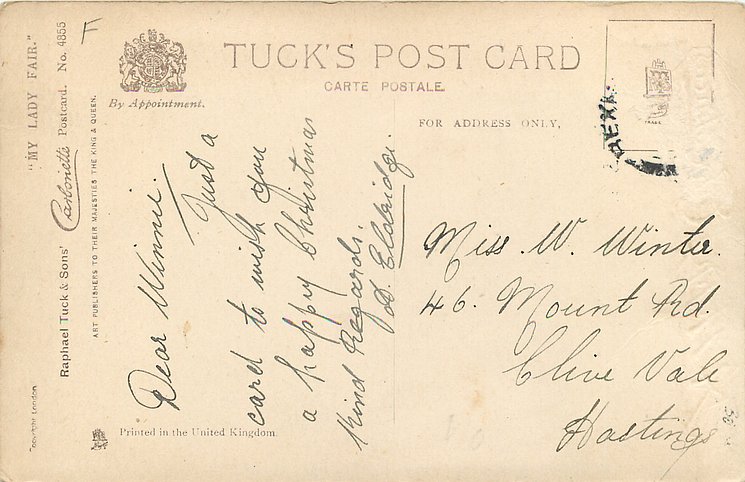 "MY LADY FAIR."
Raphael Tuck & Sons' Carbonette Postcard. No. 4855
ART PUBLISHERS TO THEIR MAJESTIES THE KING & QUEEN.
Copyright London
F
By Appointment.
TUCK'S POST CARD
CARTE POSTALE
FOR ADDRESS ONLY.
TRADE
BEXH
Dear Winnie.
Just a
card to wish you
a happy Christmas
Kind Regards.
D. Eldridge.
Miss. W. Winter.
46. Mount Rd.
Clive Vale
Hastings
Printed in the United Kingdom.